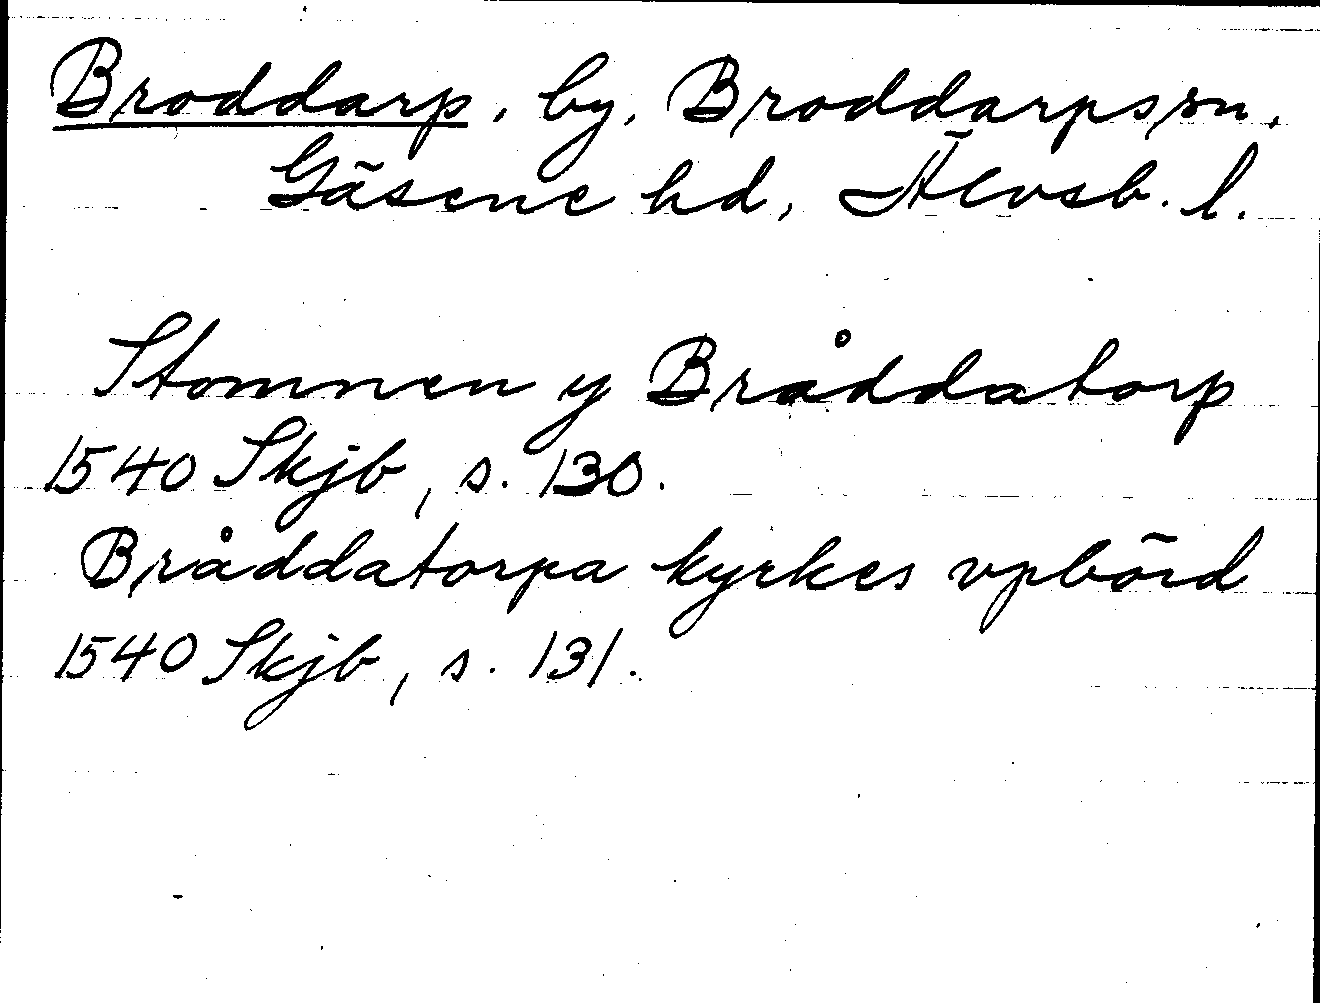 Broddarp, by, Broddarps sn,
Gäsene hd, Älvsb. l.
Stomnen y Bråddatorp
1540 Skjb, s. 130.
Bråddatorpa kyrkes vpbörd
1540 Skjb, s. 131.